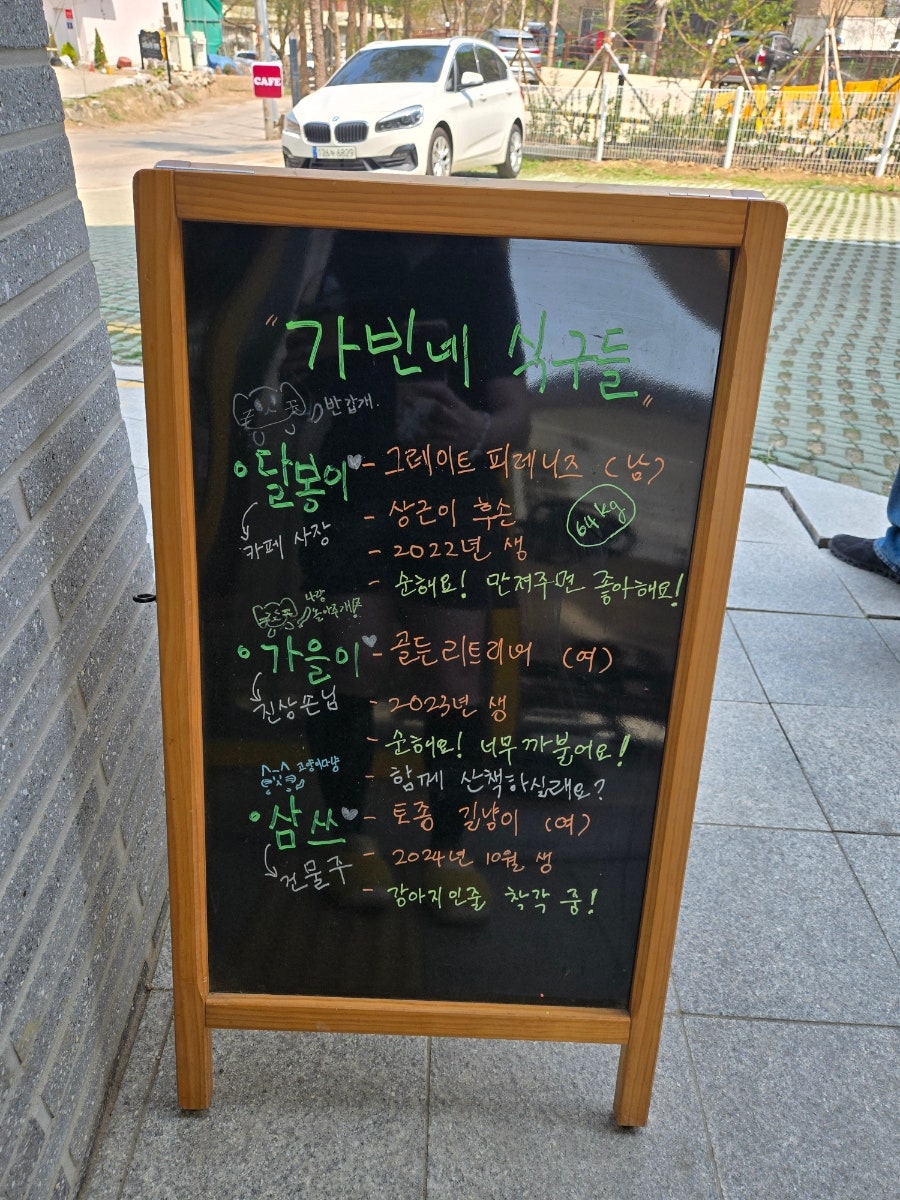 CAFE
"가빈네 식구들"
반갑개.
달봉이 - 그레이트 피레니즈 (남)
카페 사장
- 상근이 후손
64kg
- 2022년 생
- 순해요! 만져주면 좋아해요!
나랑
놀아주개
가을이 - 골든리트리버 (여)
진상손님
- 2023년 생
- 순해요! 너무 까불어요!
- 함께 산책하실래요?
고양이다냥
삼쓰 - 토종 길냥이 (여)
건물주
- 2024년 10월 생
- 강아지인줄 착각 중!